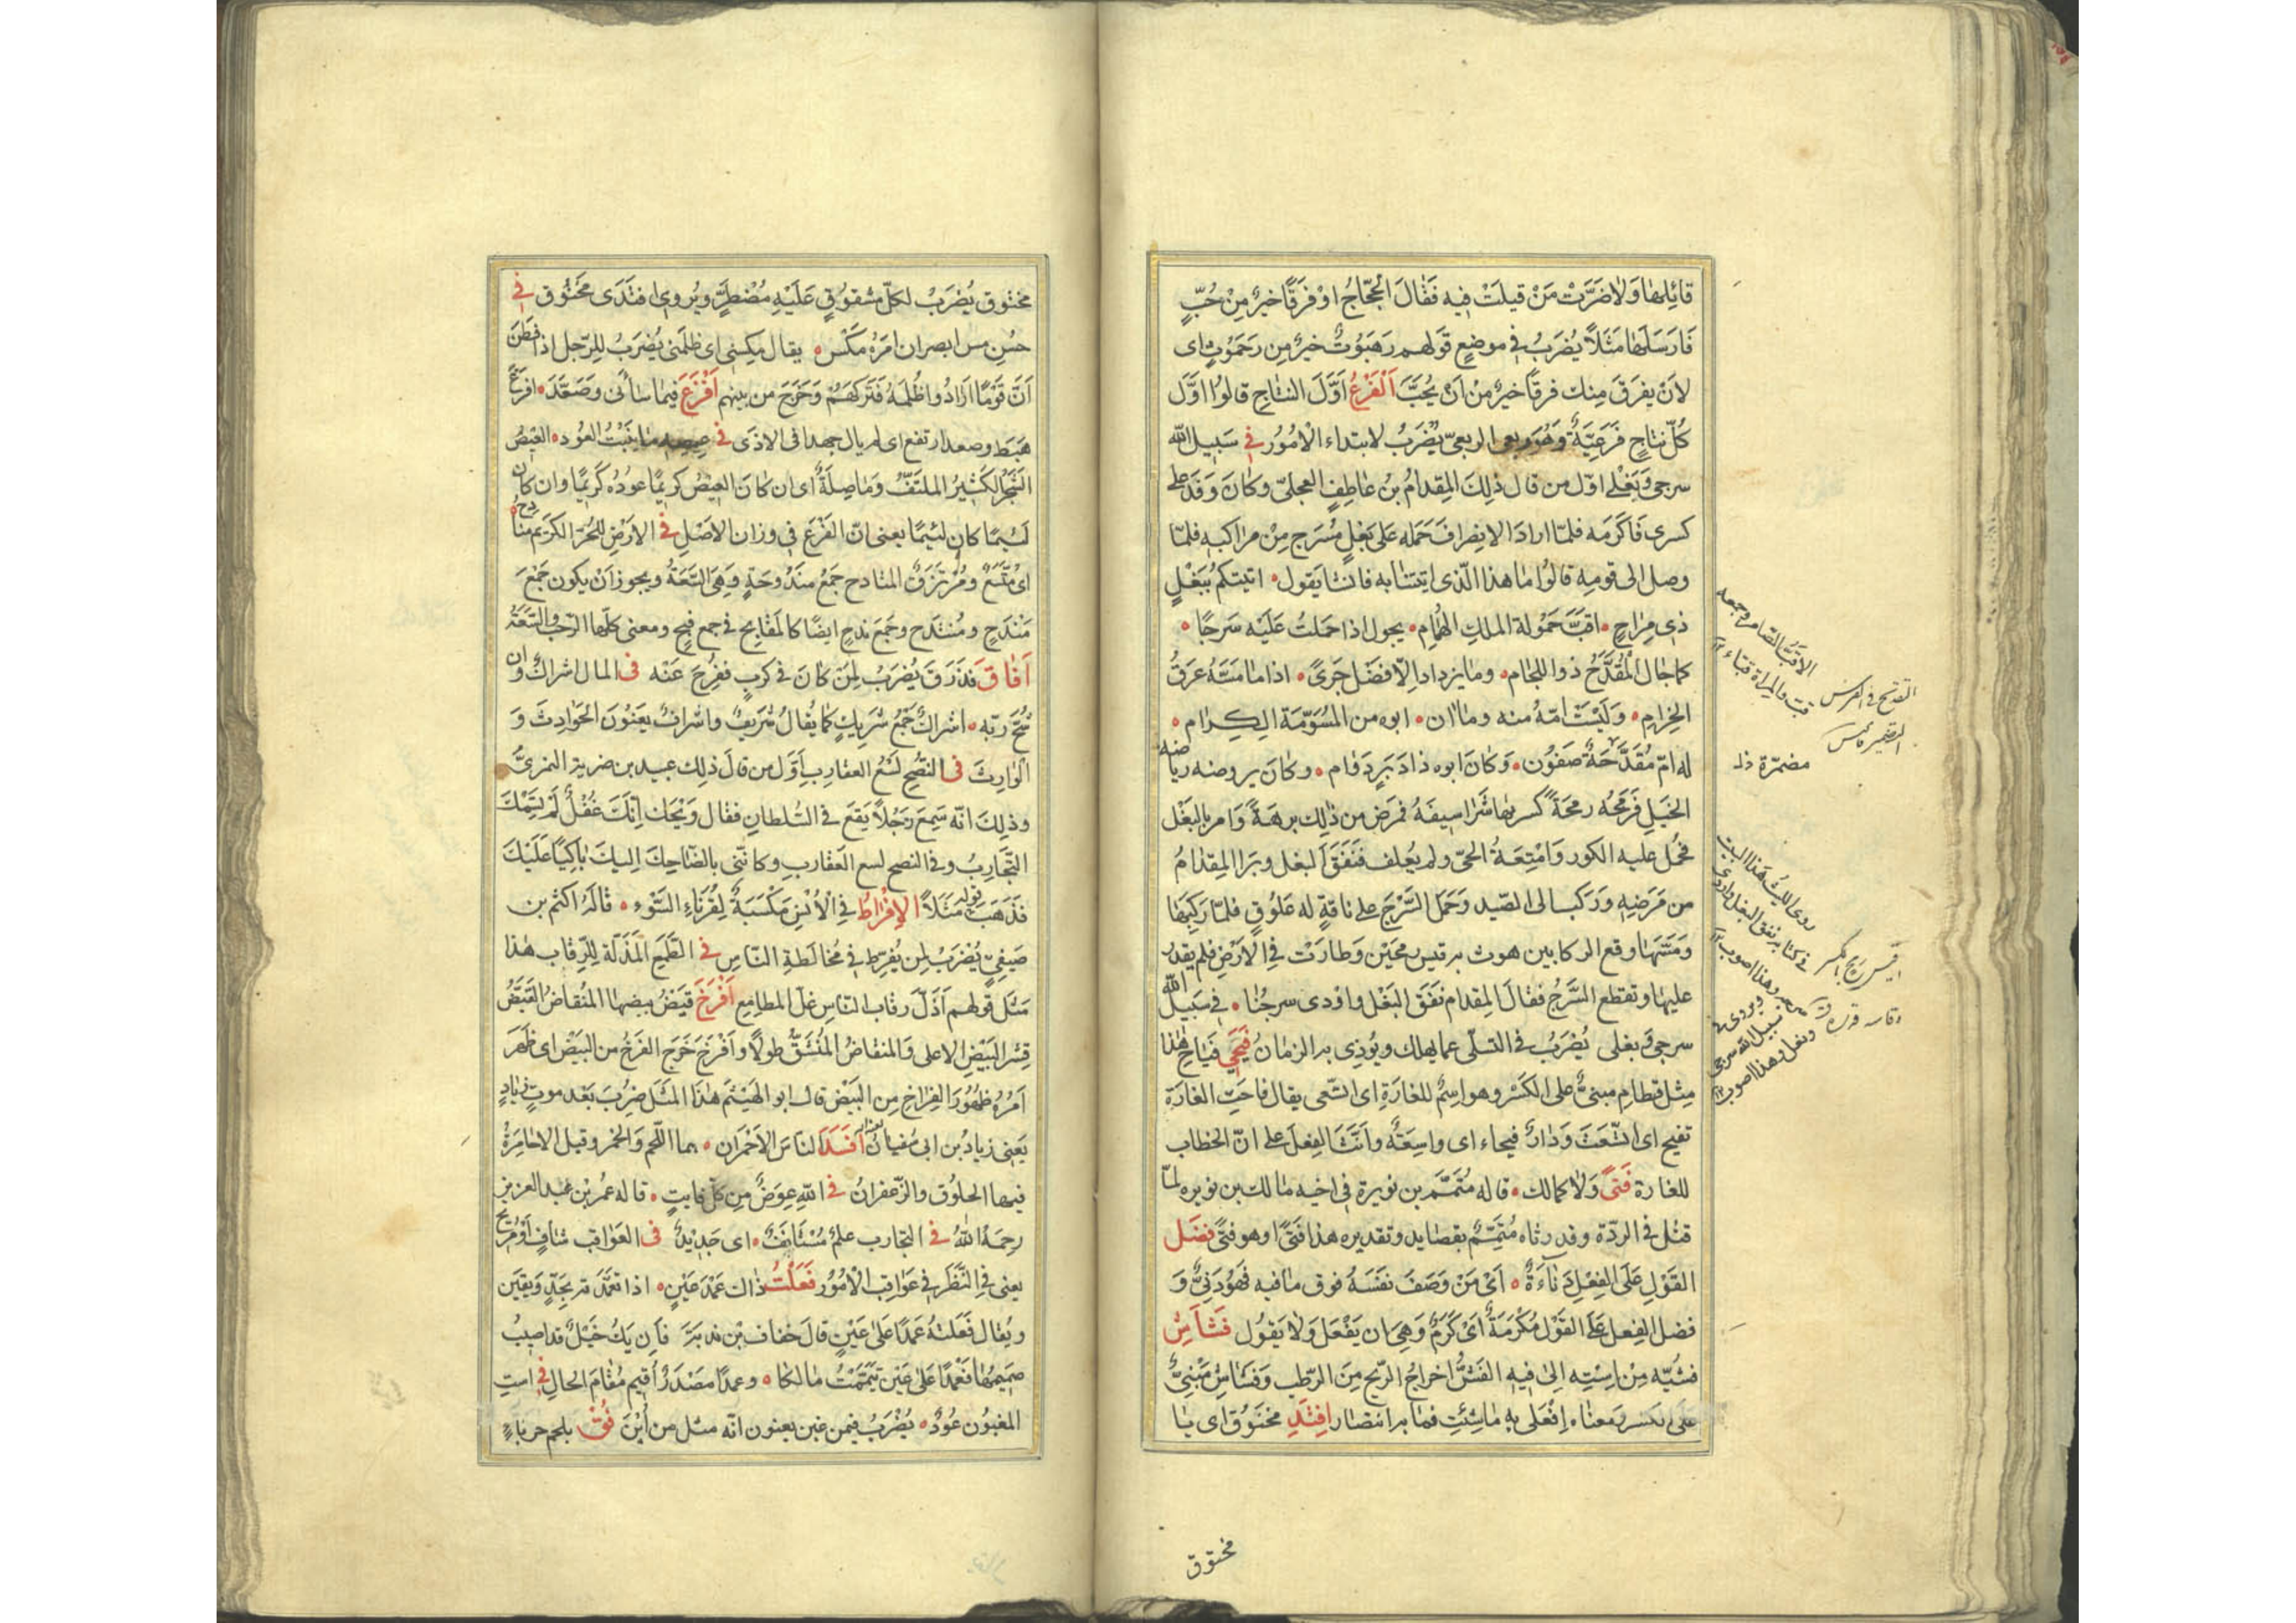 قائِلها وَلاٰ ضَرَّتْ مَنْ قيلَتْ فيه فَقالَ الْحَجّاجُ اوْ فَرَقًا خيرٌ مِنْ حُبٍّ
فَارَسَلَهٰا مَثَلاً يُضرَبُ في موضعِ قَولهم رَهَبُوتٌ خيرٌ مِن رَحَمُوتٍ اى
لاَنْ يفرَقَ مِنك فرقًا خيرٌ مِنْ اَنْ يُحَبَّ اَلْفَرْعُ اَوَّلَ النتاجِ قالوُا اوَّل
كُلّ نتاجٍ فَرَعَيَّةٌ وَهُوَ ربعى الربعىّ يُضْرَبُ لابتداء الْامُوُر في سَبيلِ اللّٰه
سرجى وَبَغْلى اوّل من قال ذلِكَ المِقدامُ بنُ عاطِفٍ العجلىّ وكان وَفَدَ على
كسرى فَاكَرَمَه فلمّا ارادَ الانصِرافَ حَمَله عَلى بَغْلٍ مُسْرَجٍ مِنْ مراكبهِ فلمّا
وصل الى قومِهِ قالوُا ما هذا الّذى اتيتنٰا به فانشا يَقول ه اتيتكمُ بِبَغْلٍ
ذى مِرٰاحٍ ه اقبَّ حَمُولة الملكِ الهُمامِ ه يجول اذا حمَلتُ عَلَيْه سَرجًا ه
كما جال الْمُقَدَّحُ ذو اللجامِ ه ومٰا يزداد اِلاّ فضلَ جَرىً ه اذا ما مَسَّهُ عرَقُ
الحِزامِ ه وَلَيْسَتْ امّهُ منه وماان ه ابوه من المُسَوّمَة الكِرامِ ه
له امّ مُقَدَّحَةٌ صَفوُن ه وَكٰانَ ابوه ذا دَبَرٍ دَوام ه وكانَ يروضه رياضه
الخيَلِ فَرَمحَه رمحَةً كسر بها شَراسيفَهُ فمَرض من ذٰلِك برهَةً وَامر بالبَغْل
فحُمل عليه الكور وَامْتِعَةُ الحىّ ولم يُعلف فنَفَقَ البغل وبَرا المِقدامُ
من مَرَضِهِ وَرَكب الى الصّيد وَحَمَل السَّرْجَ على ناقةٍ له عَلوُقٍ فلمّا رَكِبَهٰا
وَمَسَّهٰا وقع الركابين هوت به قيس رمحَيْن وَطارَتْ فِى الاَرْضِ فلم يقدر
عليها وتقطع السَّرْجُ فقالَ المِقدام نَفَقَ البَغْلُ واوْدى سرجُنا ه في سَبيل اللّٰه
سرجى وَبغلى يُضْرَبُ في التسلّى عما يهلك ويُوذِى به الزمانُ فَيحى فيَاحِ هٰذا
مِثل قطامِ مبنىٌّ على الكَسْرِ وهو اسِمٌ للغارَةِ اى اتّسعى يقال فاحَتِ الغارَة
تفيح اى اتّسَعَتْ وَدٰارٌ فيحاء اى واسِعَةٌ وانَّثَ الفِعلَ على انّ الخطاب
للغارة فَتىً وَلاٰ كمالك ه قاله مُتَمَّم بن نويرة في اخيه مالك بن نويره لمّا
قتُل في الردّة وقد رثاه مُتمِّمٌ بقصايد وتقديره هذا فَتىً او هو فتىً فضَل
القَوْلِ عَلَى الفِعْلِ دَناٰءَةٌ ه اَىْ مَنْ وَصَفَ نفَسَهُ فوق مٰا فيه فَهُوَ دَنِىٌّ وَ
فضل الفِعل عَلى القَوْلِ مُكْرَمَةٌ اَىْ كَرَمٌ وَهِىَ ان يَفْعَل وَلاٰ يَقوُل فَشٰاشِ
فشُيّه مِنْ اِسْتِه اِلىٰ فيْه الفَشُّ اخراجُ الرّيح مِنَ الرّطب وَفَشاشِ مَبْنىٌّ
على الكَسْر وَمعناه اِفْعَلى بهِ ماٰ شِئتِ فمٰا به انتصٰار اِفتَدِ مَخنوُق اى يٰا
مخنوق
الاقبّ الضامر وجمعه
قب والمراة قبّاء ١٢
التقديح في الفرس
التضمير قاموس
مضمّرة ذلـ
روى الليث هذا البيت
في كتابه نفق البغل واودى
سرجه وهذا اصوب ١٢
ويروى في
سبيل اللّه سرجى
وبغل وهذا اصوب ١٢
مخنوق يُضرَبُ لكلّ مشفوُقٍ عَلَيْهِ مُضْطرٍّ ويُروى افتَدَى مَخْنوُق في
حُسنِ مس ابصر ان امرَهُ مَكْسٌ ه يقال مكسنى اى ظلَمنى يُضْرَبُ للِرّجل اذا فطَنَ
اَنَّ قَوْمًا ارَادُوا ظُلَمَهُ فَتَرَكَهُمْ وَخَرَجَ من بينهم اَفْرَعَ فيما سٰاْنى وَصَعَّدَ ه افَرَعَ
هَبَطَ وصعد ارتفع اى لم يال جهدا فى الاذَى في عيصهِ مٰا ينبُتُ العوُد ه العيْصُ
الشجَرُ الكَثيرُ الملتَفّ وَمٰا صِلَةٌ اى ان كانَ العيْصُ كريمًا عودُه كَريمًا وان كان
لئيمًا كان لئيمًا يعنى انّ الفَرْعَ فى وزان الاصْلِ في الارَضِ للحُرّ الكَريم منادح ه
اىْ مُتّسَعٌ ومُرْتزَقٌ المنادح جَمعُ مَندُوحَةٍ وَهِىَ السَّعَةُ ويجوز اَنْ يكون جَمْعَ
مَنْدَحٍ ومُنتدَح وجَمعَ ندحٍ ايضًا كالمَقٰابح في جمع قبحٍ ومعنى كلّها الرّحبُ والسَّعَةُ
اَفٰاقَ فَذَرَقَ يُضرَبُ لِمَنْ كانَ في كَربٍ ففُرِجَ عَنْه فى المال اشراكٌ وان
شُحّ رَبّه ه اشراكٌ جَمْعُ شَريكٍ كما يُقالُ شَريفٌ واشرافٌ يَعْنُونَ الحَوادِثَ وَ
الْوٰارِثَ فى النصُحِ لَسْعُ العقارِبِ اوّل من قالَ ذلِك عبيد بن ضرية النمرىّ
وذلِك انّه سَمِعَ رَجُلاً يَقَعُ في السُلطانِ فقال وَيْحَك اِنّكَ غُفْلٌ لَمْ تسِمْكَ
التّجارِبُ وفى النصح لسع العَقارب وكانّنى بالضّاحِكِ اِليكَ باٰكِيًا عَلَيْكَ
فذَهَبَ قولهُ مَثَلاً الاِفراطُ فِى الْاُنْسِ مَكْسَبَةٌ لِقُرَنٰاءِ السَّوْء ه قالَهُ اكثم بن
صَيفىٍّ يُضْرَبُ لمِن يُفرِطُ في مُخالَطةِ النّاسِ في الطّمَعِ المَذَلّة لِلرِّقابِ هٰذا
مَثل قَولهم اَذَلّ رقابَ النّاسِ غلّ المطٰامِعِ اَفْرَخَ قيضُ بيضها المُنقاضُ القيَضُ
قِشرُ البَيْضِ الاعلى وَالمنقاضُ المُنْشَقُّ طُولاً وَافْرَخَ خَرَجَ الفرَخُ من البَيْضِ اى ظَهَرَ
اَمرُهُ ظهُورَ الفِرٰاخِ مِن البَيْض قال ابو الهَيْثَم هذا المَثَلُ ضُرِبَ بَعْد موتِ زيادٍ
يَعنى زياد بن ابى سُفيان لعنه اَفسَدَ النّاسَ الاَحْمَران ه هما اللّحم وَالخمر وقيل الاحامِرَةُ
فيها الخلوُق والزّعفرانُ في اللّٰهِ عِوَضٌ مِن كلّ فايتٍ ه قاله عُمر بْن عَبد العزيز
رحِمَهُ اللّٰهُ في التجارب علمٌ مُسْتَاٰنَفٌ ه اى جَديدٌ فى العَواقب شافٍ اَوْ مُريح
يعنى فِى النَّظَر في عَوٰاقِب الْامُوُر فَعَلْتُ ذاك عَمْدَ عَيْنٍ ه اذا تعمَّدَته بجِدٍّ وَيَقين
ويُقال فَعَلتُهُ عَمدًا عَلىٰ عَيْنٍ قالَ خفاف بْن ندبَة فاِن يَكُ خَيْلٌ قد اصيبُ
صَميمُهٰا فَعْمدًا عَلىٰ عَيْنٍ تَيَمَّمْتُ مٰالكا ه وعمدًا مَصْدَرٌ اُقيم مُقامَ الحالِ في استِ
المغبوُن عوُدٌ ه يُضْرَبُ فيمن غبن يعنون انّه مثل من اُبِنَ فُقْ بلحم حرباءٍ